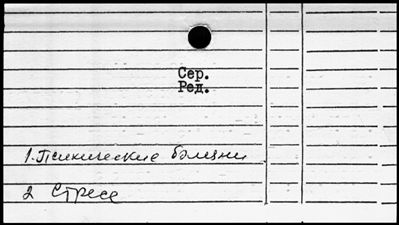 Сер.
Ред.
1. Психические болезни
2 Стресс